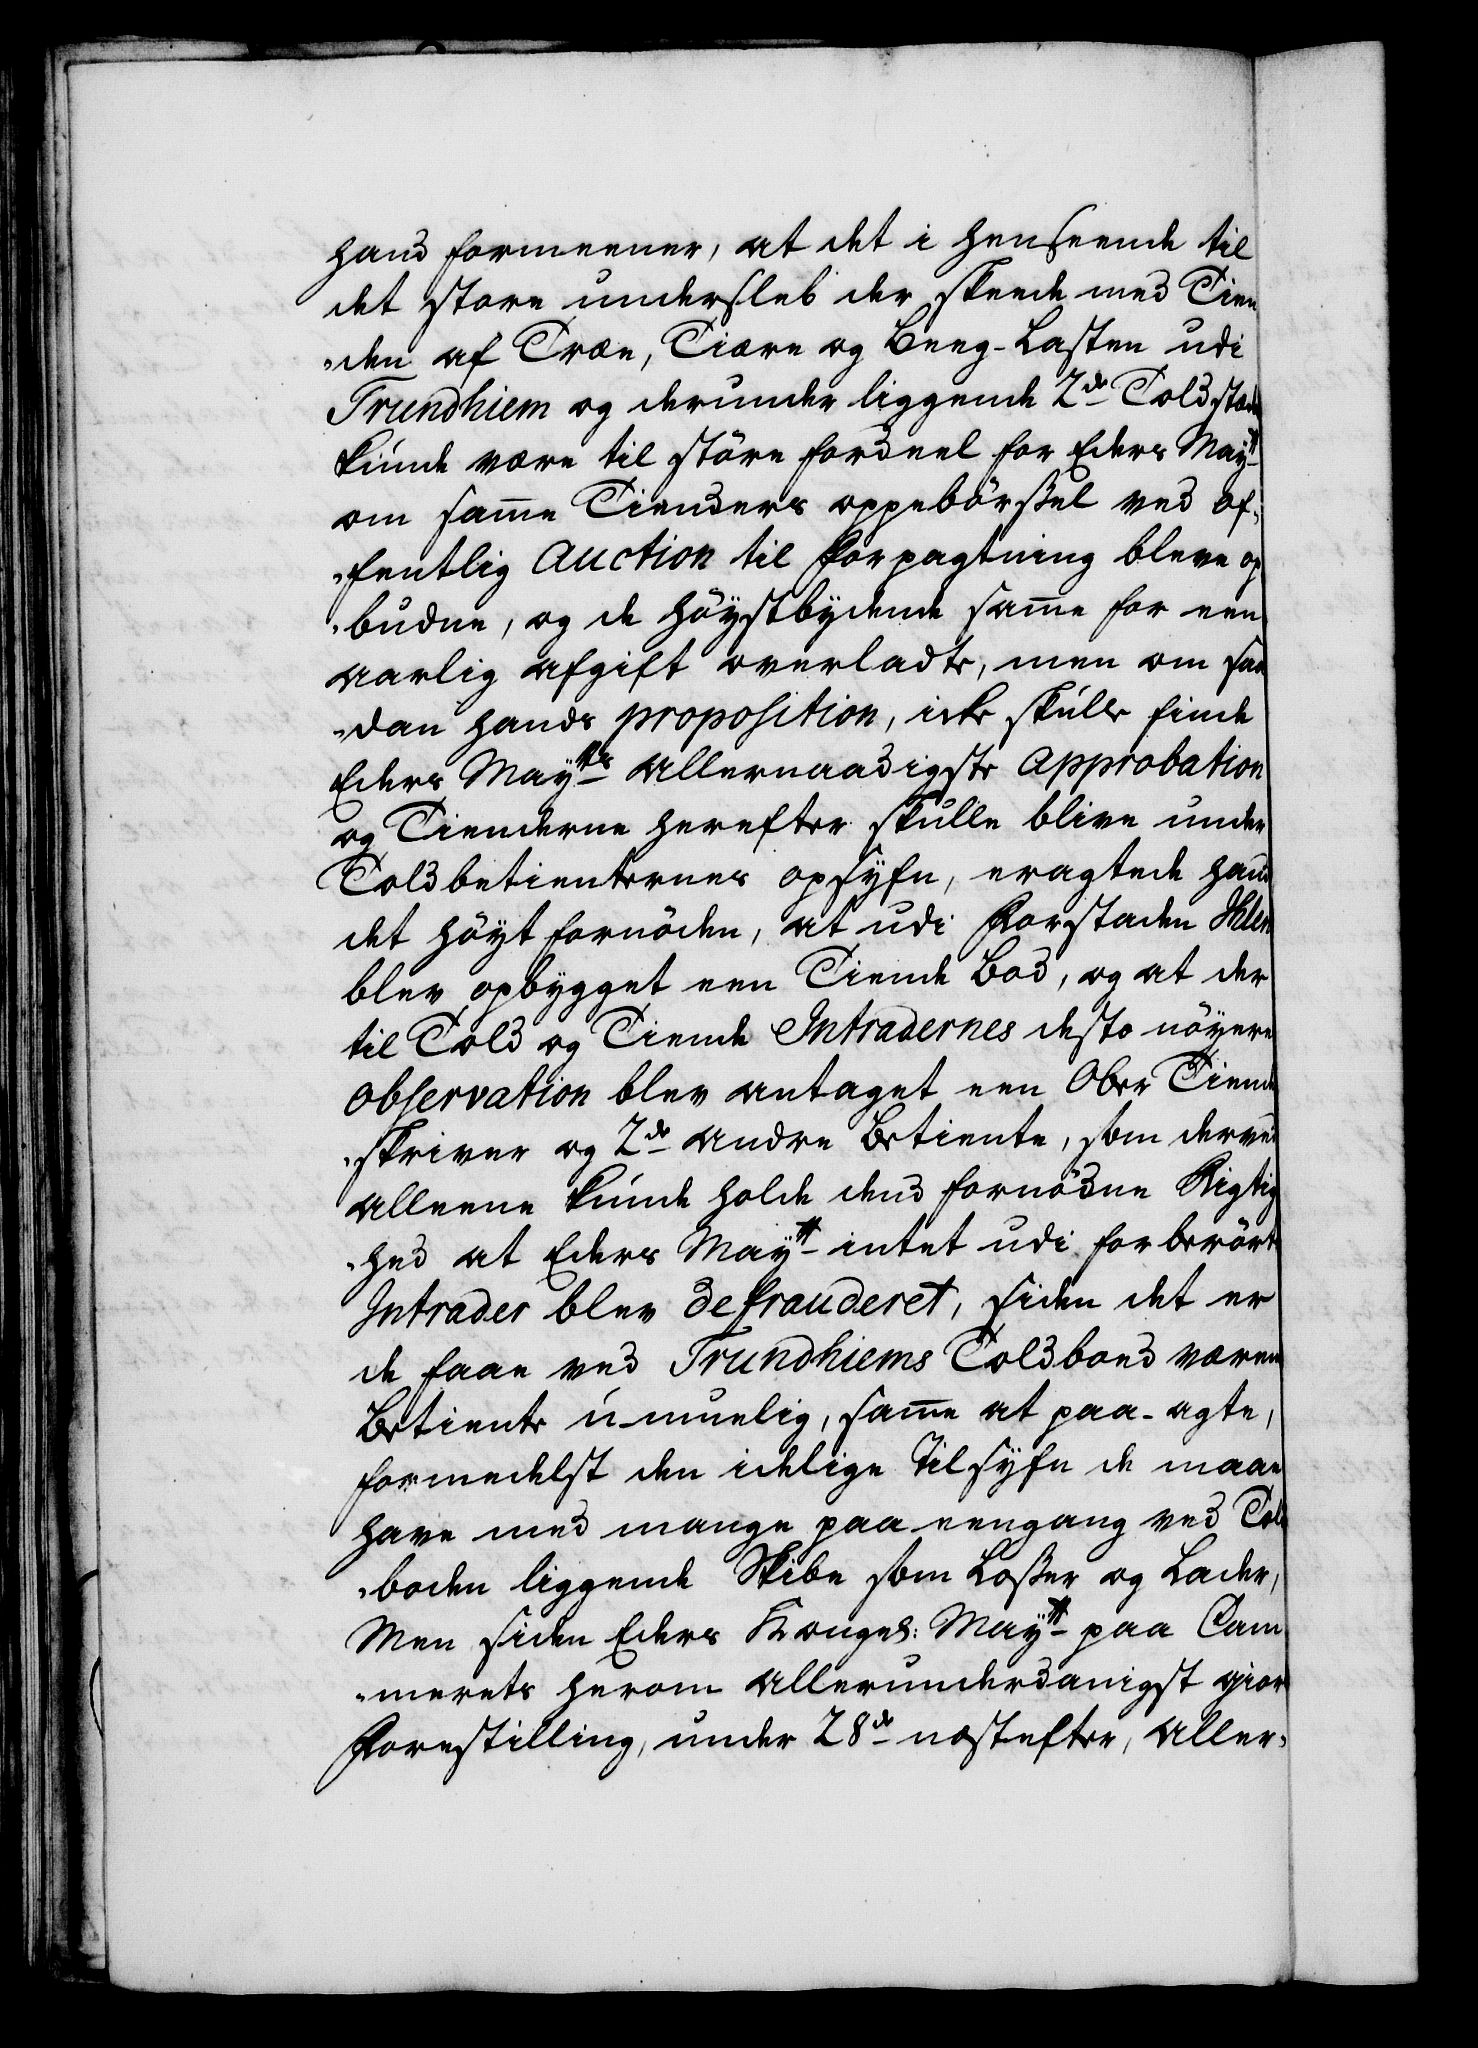 hand formeener, at det i henseende til
det store undersleb der skeede med Tien
"den af Træe, Tiære og Beeg-Lasten udi
Trundhiem og derunder liggende 2de Toldstæde
kunde være til störe fordeel for Eders Maytt
om same Tienders oppebörßel ved of„
"fentlig Auction til forpagtning bleve op
"budne, og de höystbydende same for een
aarlig afgift overladte, men om saa
"dan hands proposition, icke skulle finde
Eders Maytts Allernaadigste Approbation
og Tienderne herefter skulle blive under
Toldbetienternes opsyfn, eragtede hand
det höyt fornöden, at udi Forstaden Ihlen
blev opbygget een Tiende Bod, og at der
til Told og Tiende Intradernes desto nöyere
observation blev antaget een Ober Tiende
"skriver og 2de andre Betiente, som derved
alleene kunde holde dend fornödne Rigtig
"hed at Eders Maytt intet udi forberörte
Intrader blev defrauderet, siden det er
de faae ved Trundhiems Toldboed værende
Betiente u-muelig, same at paa-agte,
formedelst den idelige Tilsyfn de maae
have med mange paa eengang ved Told
"boden liggende Skibe som Loßer og Lader,
Men siden Eders Kongel: Maytt paa Cam
"merets herom allerunderdanigst giorde
Forestilling, under 28de næstefter, aller„